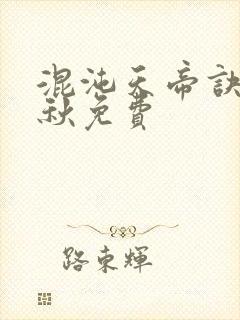 混沌天帝訣
秋免費
路東輝